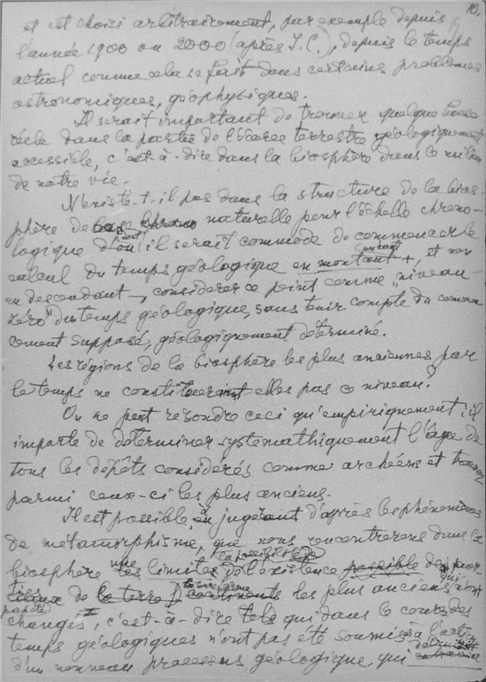 10.
et est choisi arbitrairement, par exemple depuis
l'année 1900 ou 2000 (après J.C.), depuis le temps
actuel comme cela se fait dans certains problèmes
astronomiques, géophysiques.
Il serait important de trouver quelque base
réele dans la partie de l'écorce terrestre géologiquement
accessible, c'est-à-dire dans la biosphère dans le milieu
de notre vie.
N'existe-t-il pas dans la structure de la bios-
phère de naturelle pour l'échelle chrono-
logique d'où il serait commode de commencer le
calcul du temps géologique en montant +, et non
en descendant –, considérer ce point comme „niveau-
zéro" du temps géologique, sans tenir compte du commen
cement supposé, géologiquement determiné.
Les régions de la biosphère les plus anciennes par
le temps ne constituent elles pas ce niveau?
On ne peut resoudre ceci qu'empiriquement: il
importe de déterminer systemathiquement l'âge de
tous les dépôts considérés comme archéens et trouver
parmi ceux-ci les plus anciens.
Il est possible à en jugeant d'après les phénomènes
de métamorphisme, que nous rencontrerons dans la
biosphère les limites de l'existence possible des
de la terre continents les plus anciens qui n'ont
pas été changés, c'est-à-dire tels qui dans le cours des
temps géologiques n'ont pas été soumis à l'action
d'un nouveau processus géologique, qui